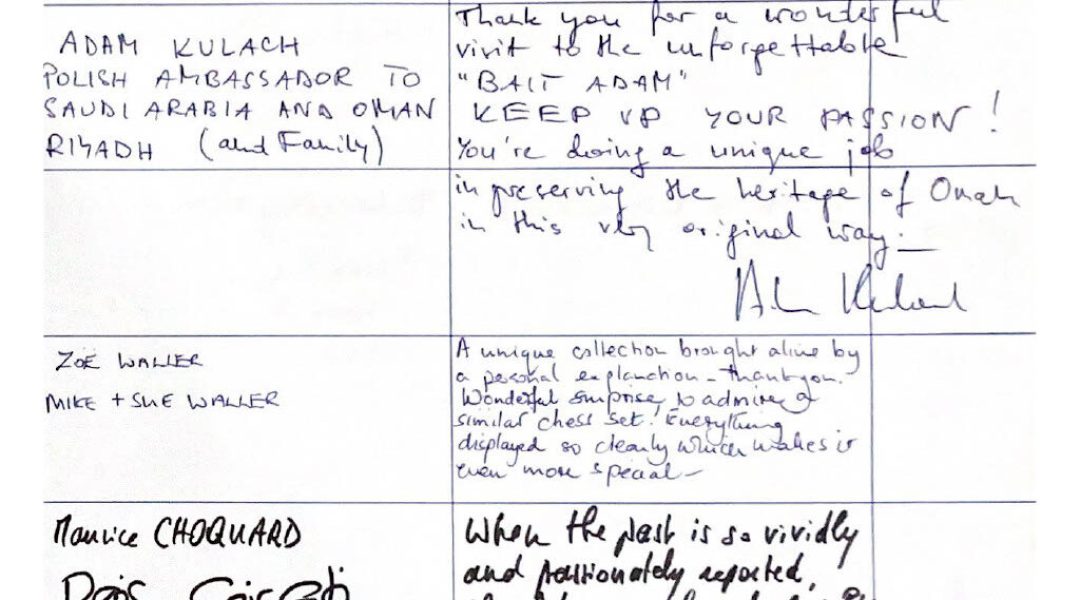 ADAM KULACH
POLISH AMBASSADOR TO
SAUDI ARABIA AND OMAN
RIYADH (and Family)
Thank you for a wonderful
vivit to the unforgettable
"BAIT ADAM"
KEEP UP YOUR PASSION!
You're doing a unique job
in preserving the heritage of Oman
in this very original way.
ZOË WALLER
MIKE + SUE WALLER
A unique collection brought alive by
a personal explanation - thank you.
Wonderful surprise to admire a
similar chess set! Everything
displayed so clearly which makes it
even more special -
Maurice CHOQUARD
When the past is so vividly
and passionately reported,